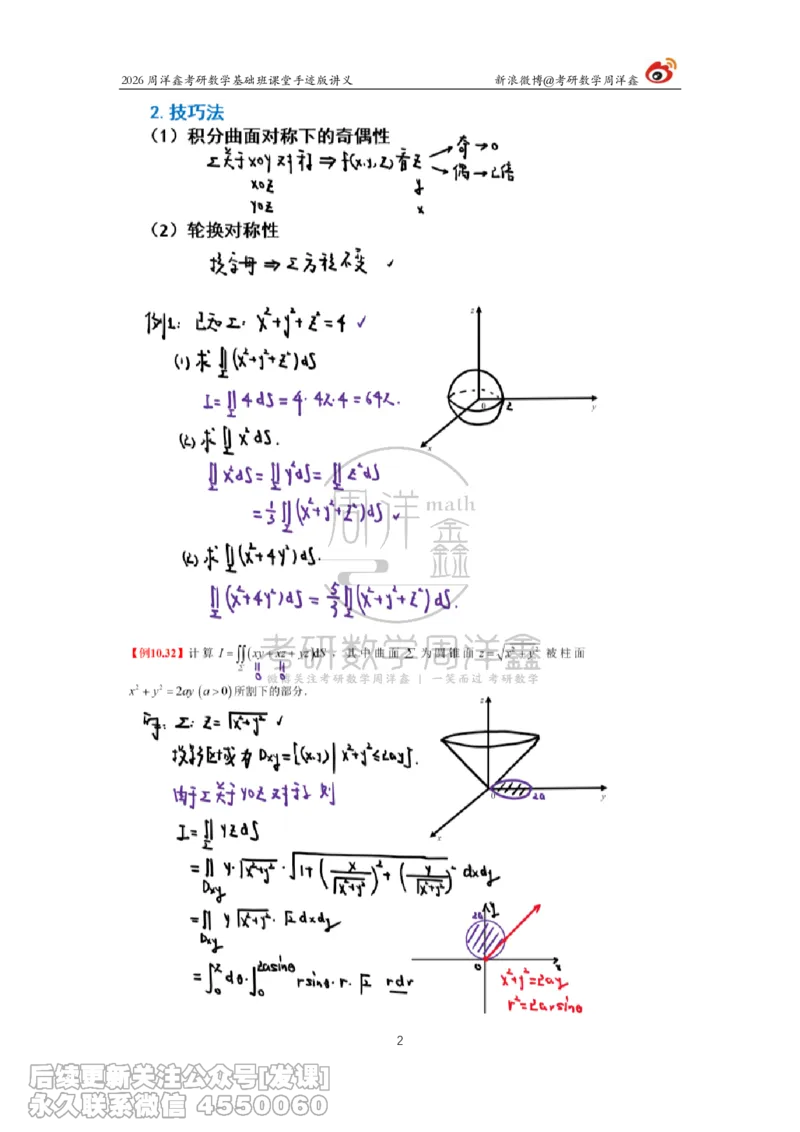 2026 周洋鑫考研数学基础班课堂手迹版讲义 新浪微博@考研数学周洋鑫
2. 技巧法
(1) 积分曲面对称下的奇偶性
Σ关于xoy对称⇒f(x,y,z)看z →奇→0
→偶→2倍
xoz y
yoz x
(2) 轮换对称性
换字母⇒Σ方程不变 ✓
例1: 已知Σ: x²+y²+z²=4 ✓
(1) 求∬_Σ(x²+y²+z²)dS
I=∬_Σ 4dS=4·4π·4=64π.
(2) 求∬_Σ x²dS.
∬_Σ x²dS=∬_Σ y²dS=∬_Σ z²dS
=1/3∬_Σ(x²+y²+z²)dS ✓
(2) 求∬_Σ(x²+4y²)dS.
∬_Σ(x²+4y²)dS=5/3∬_Σ(x²+y²+z²)dS.
z
0 2 y
x
周洋 math
鑫
考研数学周洋鑫
微博关注考研数学周洋鑫 | 一笑而过 考研数学
【例10.32】计算 I=∬_Σ(xy+xz+yz)dS，其中曲面 Σ 为圆锥面 z=√(x²+y²) 被柱面
0 0
x²+y²=2ay (a>0)所割下的部分.
解: Σ: z=√(x²+y²) ✓
投影区域为 Dxy={(x,y)|x²+y²≤2ay}.
由于Σ关于yoz对称, 则
I=∬_Σ yzdS
=∬_Dxy y·√(x²+y²)·√(1+(x/√(x²+y²))²+(y/√(x²+y²))²) dxdy
=∬_Dxy y√(x²+y²)·√2dxdy
=∫₀^π dθ·∫₀^{2asinθ} rsinθ·r·√2 rdr
z
0 2a y
x
2a y
0 x
x²+y²=2ay
r²=2arsinθ
2
后续更新关注公众号[发课]
永久联系微信 4550060